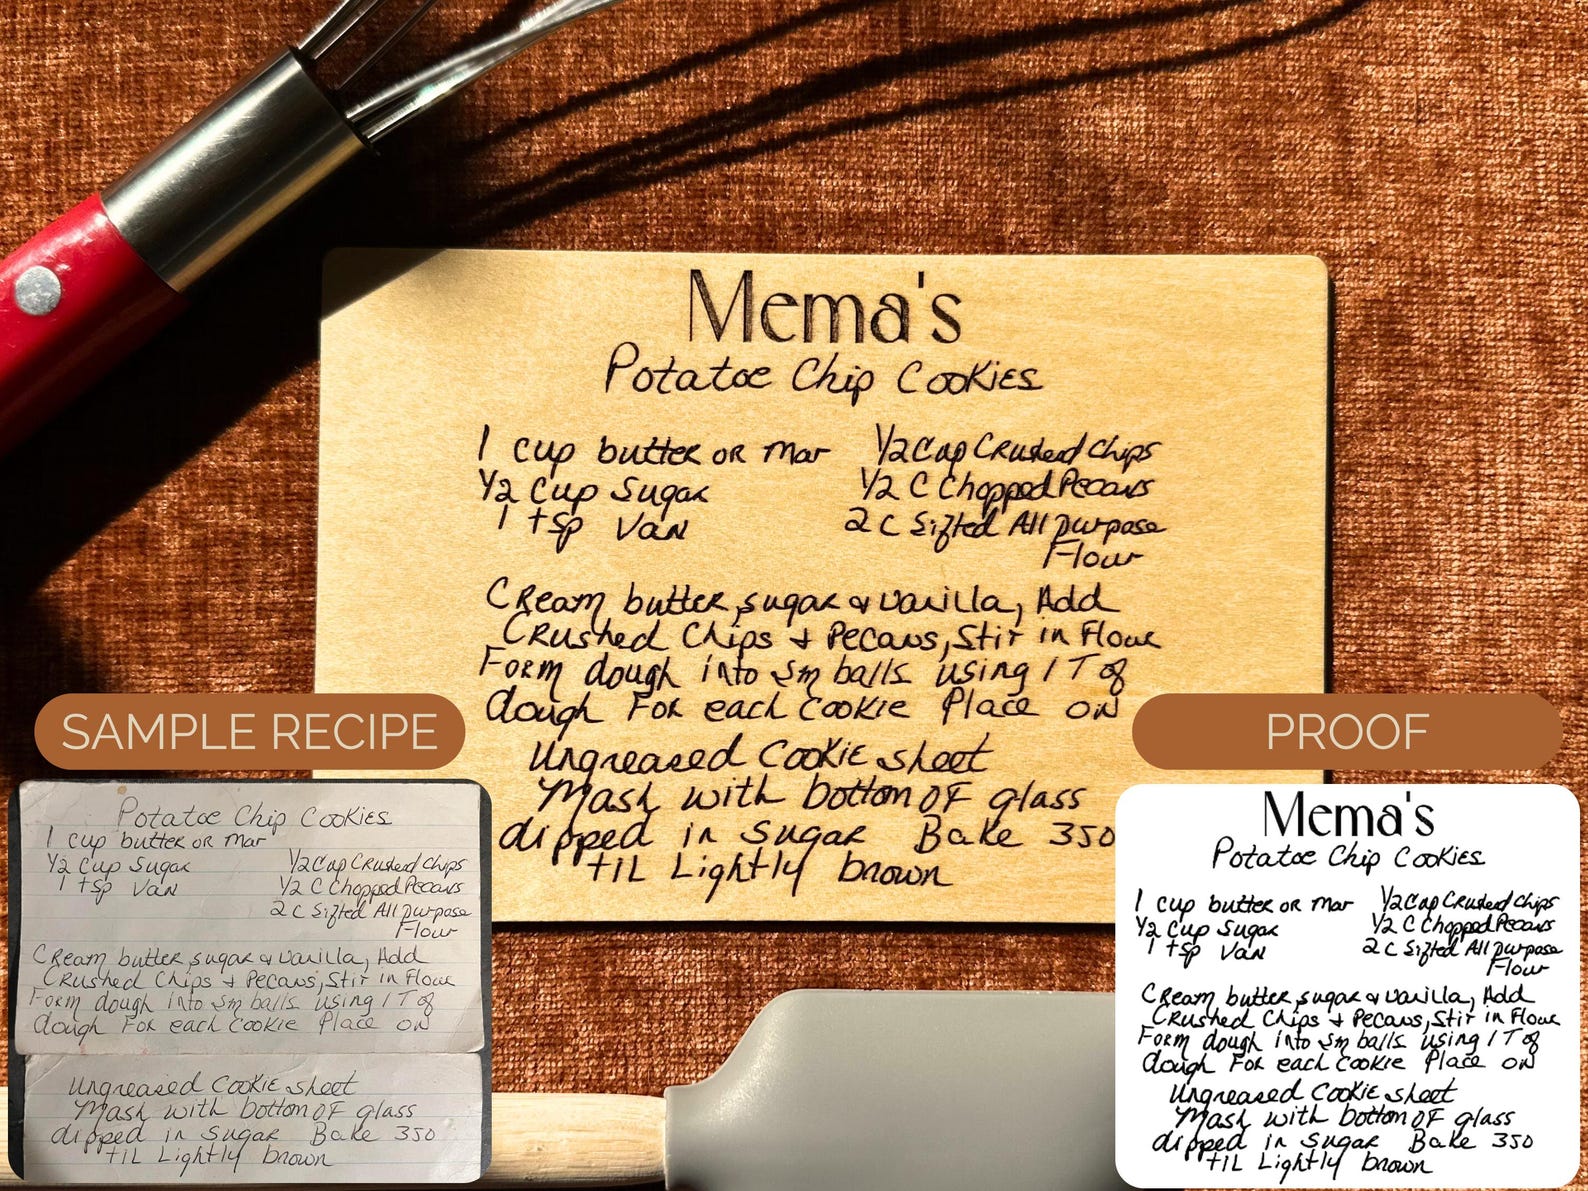 Mema's
Potatoe Chip Cookies
1 cup butter or Mar
1/2 Cup Crushed Chips
1/2 Cup Sugar
1/2 C Chopped Pecans
1 tsp Van
2 C Sifted All purpose
Flour
Cream butter, sugar & vanilla, Add
Crushed Chips + Pecans, Stir in Flour
Form dough into sm balls using 1 T of
dough For each Cookie Place on
Ungreased Cookie sheet
Mash with bottom OF glass
dipped in Sugar Bake 350
til Lightly brown
SAMPLE RECIPE
Potatoe Chip Cookies
1 cup butter or Mar
1/2 Cup Sugar
1/2 Cup Crushed Chips
1 tsp Van
1/2 C Chopped Pecans
2 C Sifted All purpose
Flour
Cream butter, sugar & vanilla, Add
Crushed Chips + Pecans, Stir in Flour
Form dough into sm balls using 1 T of
dough For each Cookie Place on
Ungreased Cookie sheet
Mash with bottom OF glass
dipped in Sugar Bake 350
til Lightly brown
PROOF
Mema's
Potatoe Chip Cookies
1 cup butter or Mar
1/2 Cup Crushed Chips
1/2 Cup Sugar
1/2 C Chopped Pecans
1 tsp Van
2 C Sifted All purpose
Flour
Cream butter, sugar & vanilla, Add
Crushed Chips + Pecans, Stir in Flour
Form dough into sm balls using 1 T of
dough For each Cookie Place on
Ungreased Cookie sheet
Mash with bottom OF glass
dipped in Sugar Bake 350
til Lightly brown